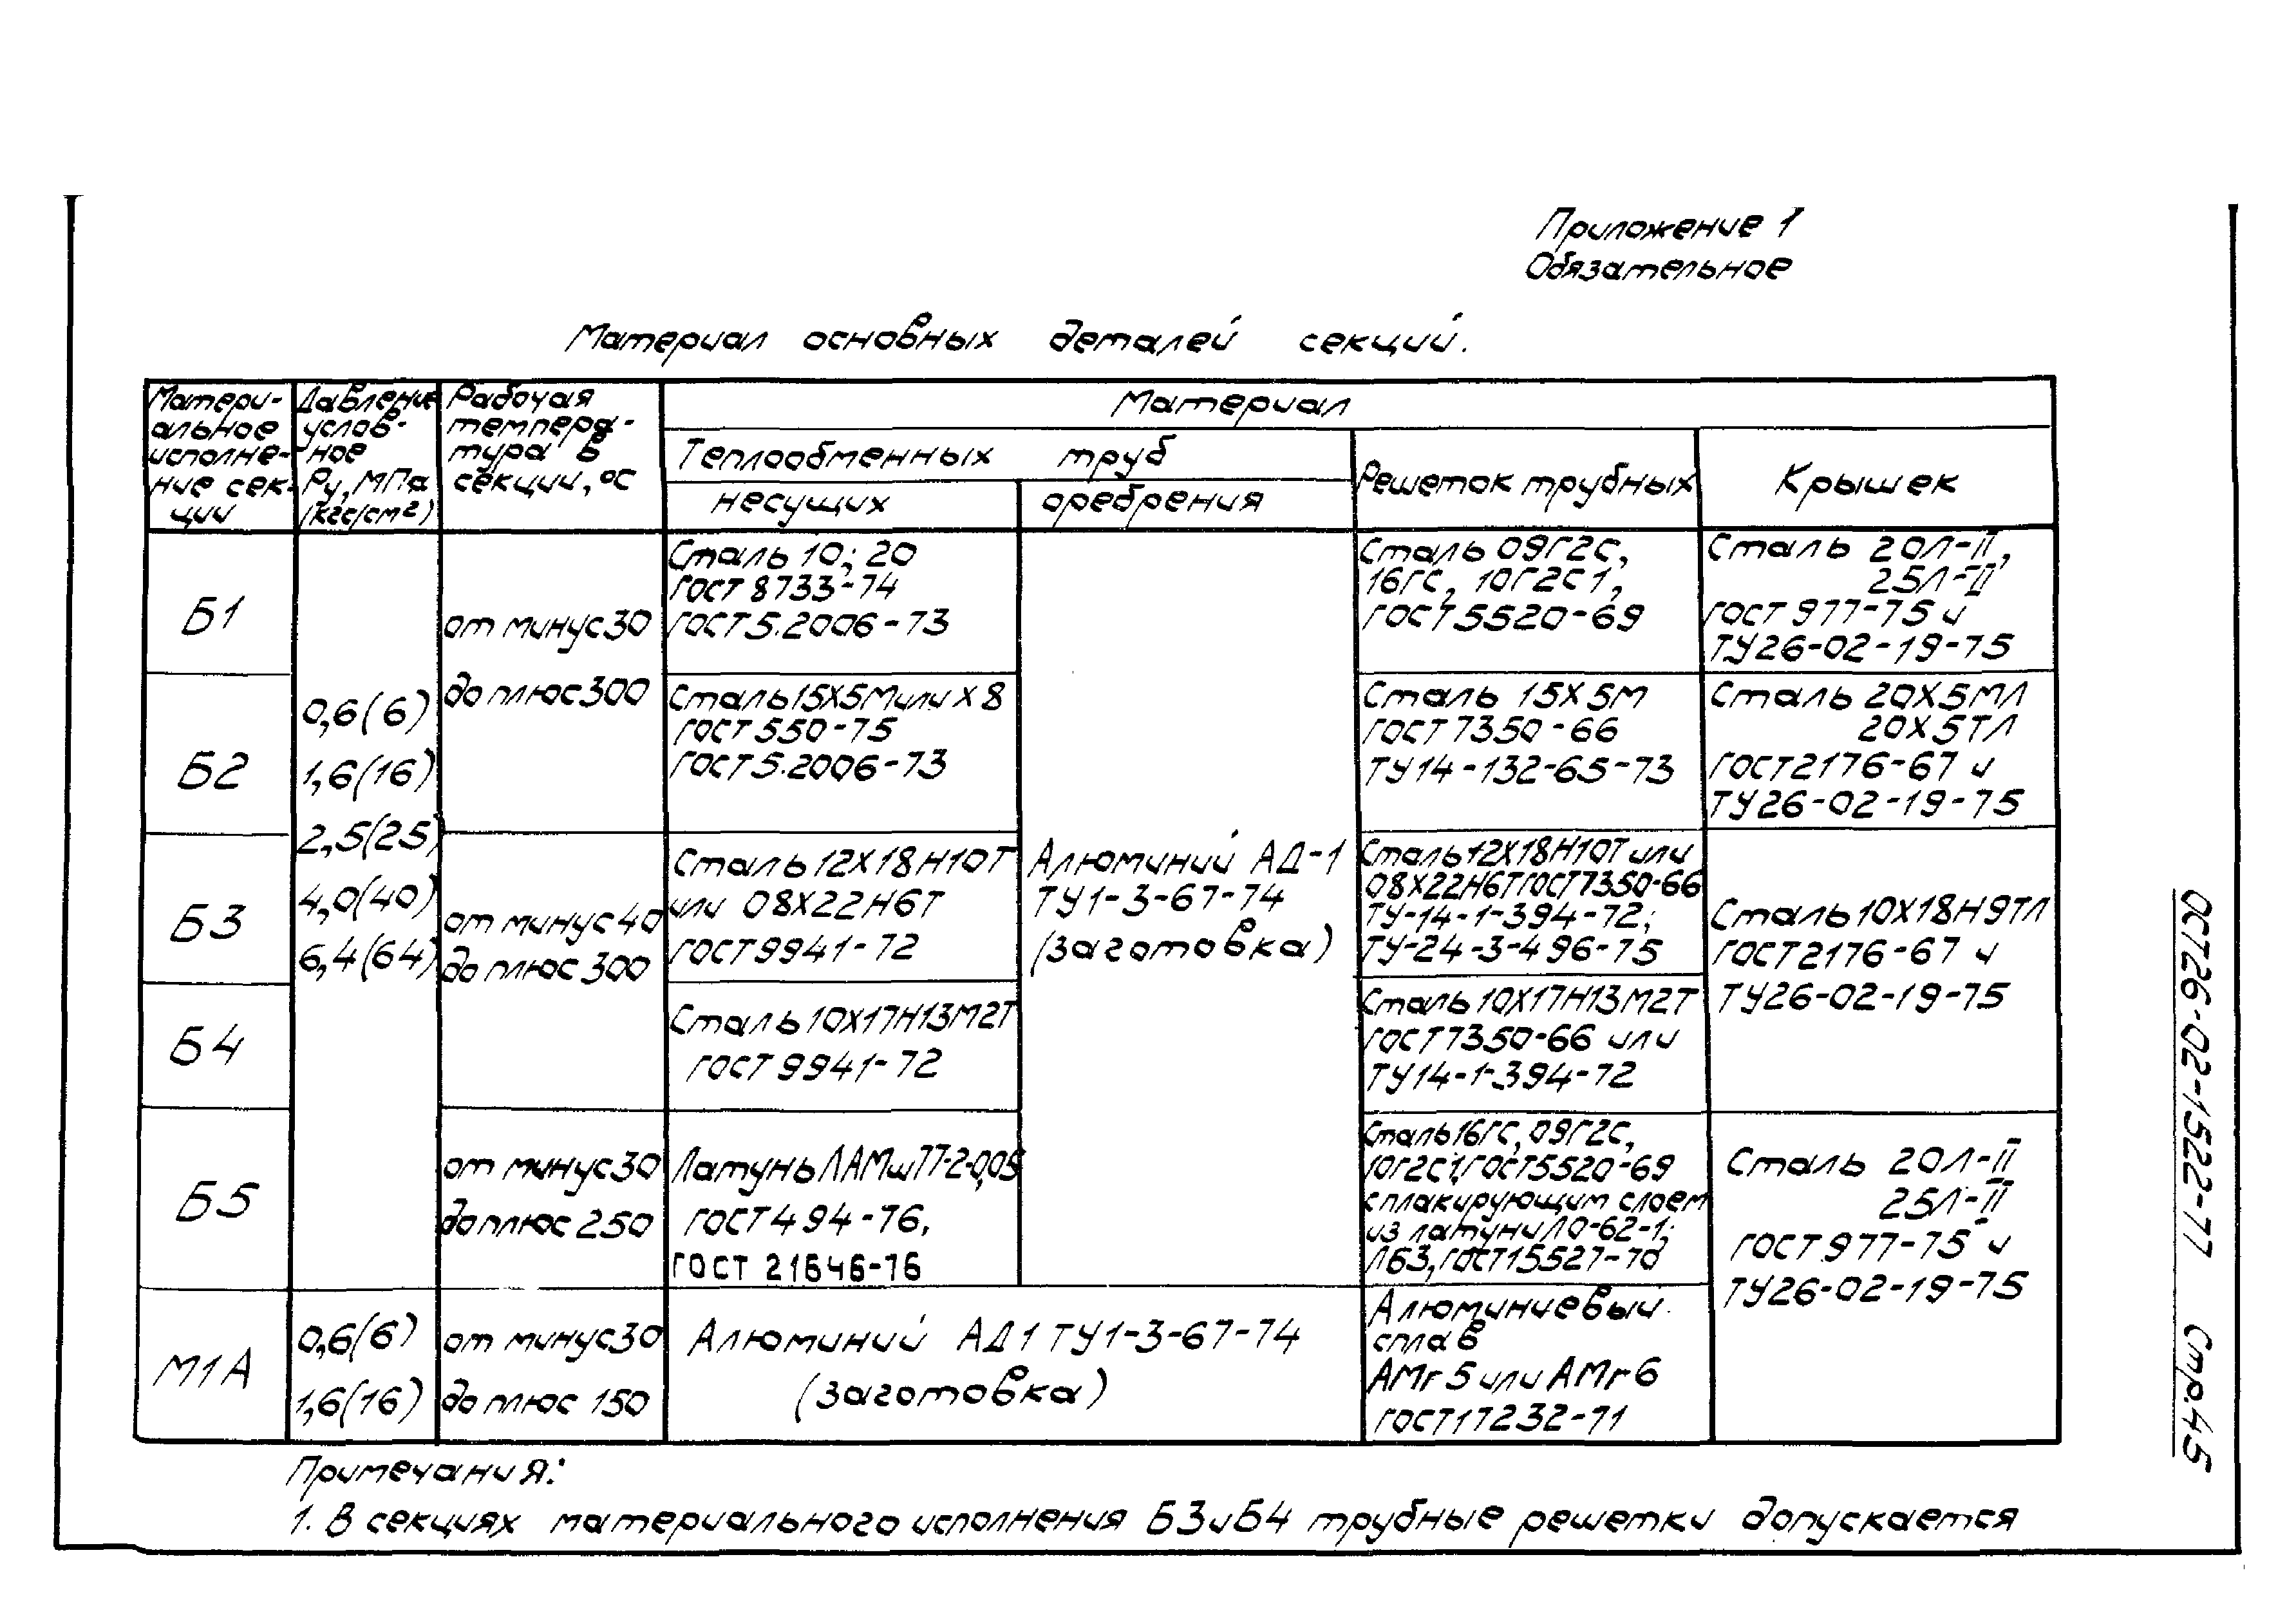 Приложение 1
Обязательное
Материал основных деталей секций.
Матери-
альное
исполне-
ние сек-
ции
Давление
услов-
ное
Ру, МПа
(кгс/см²)
Рабочая
темпера-
тура в
секции, °С
Материал
Теплообменных труб
несущих
оребрения
Решеток трубных
Крышек
Б1
0,6(6)
1,6(16)
2,5(25)
4,0(40)
6,4(64)
от минус 30
до плюс 300
Сталь 10; 20
ГОСТ 8733-74
ГОСТ 5.2006-73
Алюминий АД-1
ТУ1-3-67-74
(заготовка)
Сталь 09Г2С,
16ГС, 10Г2С1,
ГОСТ 5520-69
Сталь 20Л-II,
25Л-II
ГОСТ 977-75 и
ТУ26-02-19-75
Б2
Сталь 15Х5М или Х8
ГОСТ 550-75
ГОСТ 5.2006-73
Сталь 15Х5М
ГОСТ 7350-66
ТУ14-132-65-73
Сталь 20Х5МЛ
20Х5ТЛ
ГОСТ 2176-67 и
ТУ26-02-19-75
Б3
от минус 40
до плюс 300
Сталь 12Х18Н10Т
или 08Х22Н6Т
ГОСТ 9941-72
Сталь 12Х18Н10Т или
08Х22Н6Т ГОСТ 7350-66
ТУ-14-1-394-72;
ТУ-24-3-496-75
Сталь 10Х18Н9ТЛ
ГОСТ 2176-67 и
ТУ26-02-19-75
Б4
Сталь 10Х17Н13М2Т
ГОСТ 9941-72
Сталь 10Х17Н13М2Т
ГОСТ 7350-66 или
ТУ14-1-394-72
Б5
от минус 30
до плюс 250
Латунь ЛАМш77-2-0,05
ГОСТ 494-76,
ГОСТ 21646-76
Сталь 16ГС, 09Г2С,
10Г2С1, ГОСТ 5520-69
с плакирующим слоем
из латуни ЛО-62-1;
Л63, ГОСТ 15527-70
Сталь 20Л-II
25Л-II
ГОСТ 977-75 и
ТУ26-02-19-75
М1А
0,6(6)
1,6(16)
от минус 30
до плюс 150
Алюминий АД1 ТУ1-3-67-74
(заготовка)
Алюминиевый
сплав
АМг5 или АМг6
ГОСТ 17232-71
Примечания:
1. В секциях материального исполнения Б3 и Б4 трубные решетки допускается
ОСТ26-02-1522-77 Стр.45